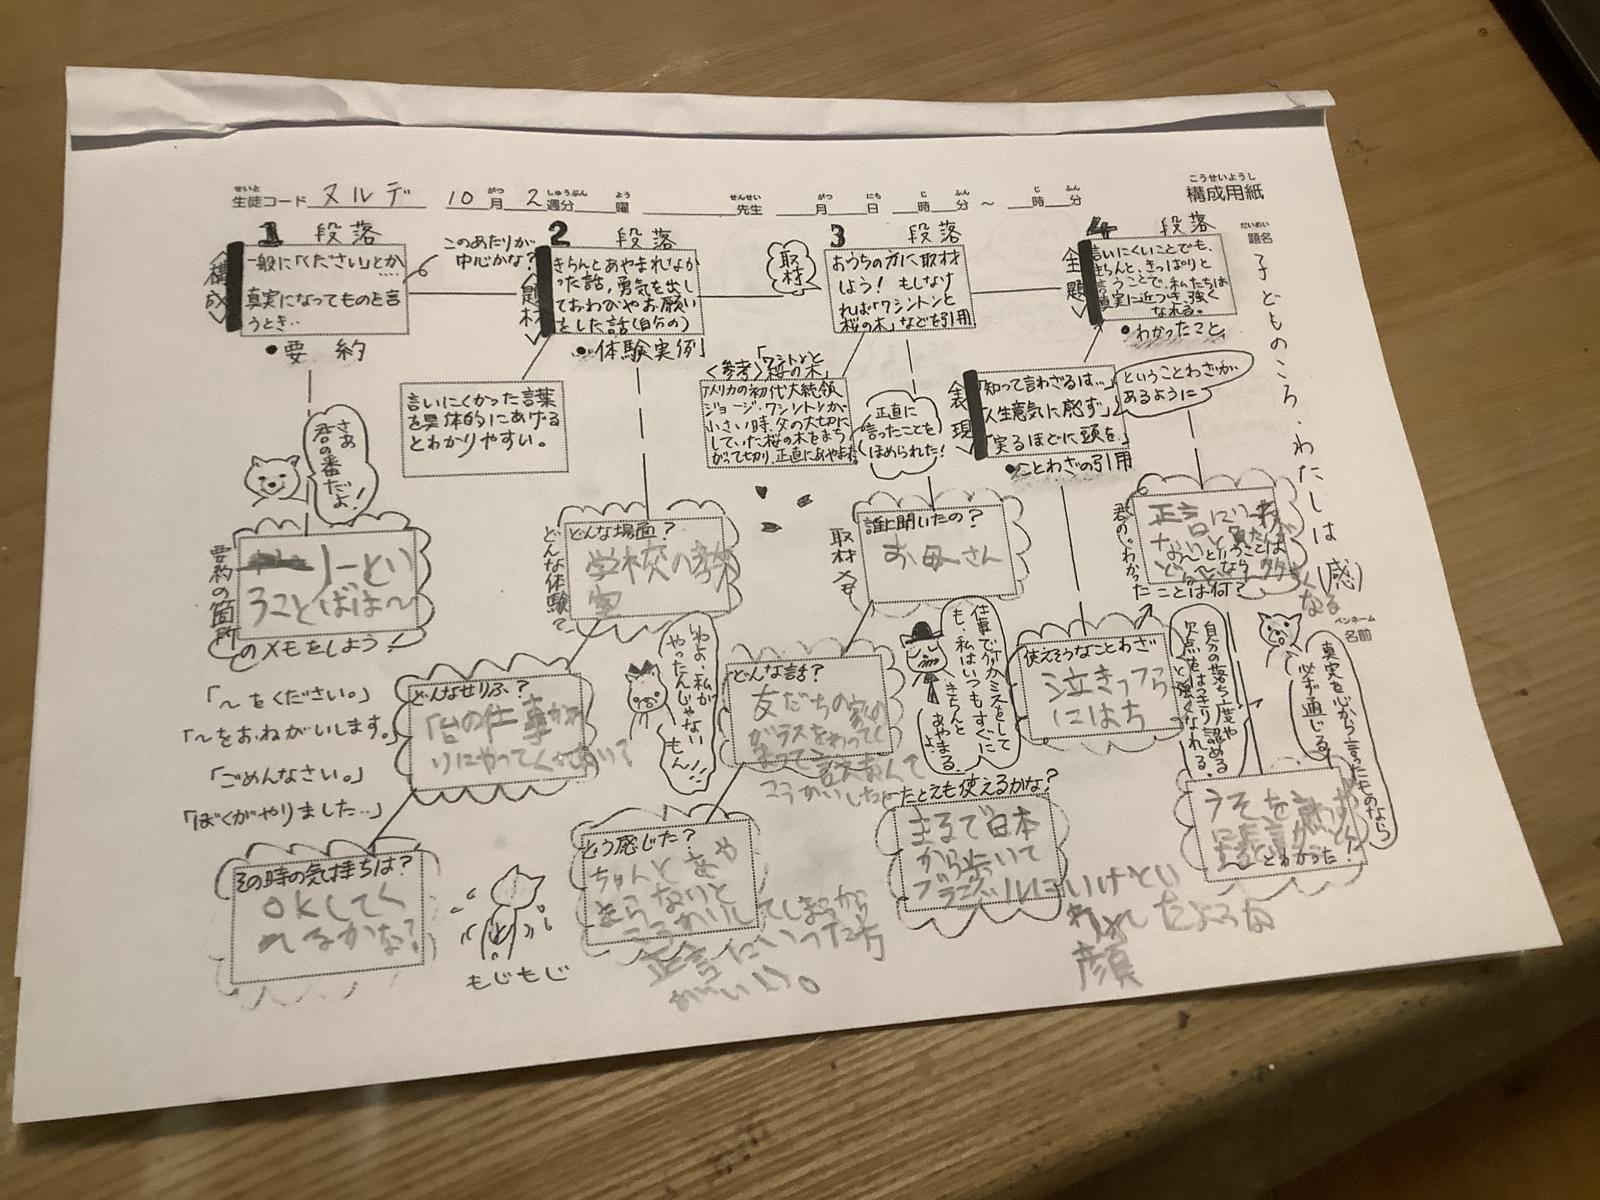 構成用紙
こうせいようし
生徒コード ヌルデ 10月 2週分 曜 先生 月 日 時 分 〜 時 分
せいと がつ しゅうぶん よう せんせい がつ にち じ ふん じ ふん
題名
だいめい
子どものころ、わたしは(感)
ペンネーム
名前
1 段落
〈構成〉
一般に「ください」とか…
真実になってものと言
うとき…
●要約
このあたりが
中心かな?
さあ
君の番だよ!
要約の箇所
ーとい
うことばは〜
のメモをしよう!
「〜をください。」
「〜をおねがいします。」
「ごめんなさい。」
「ぼくがやりました…」
2 段落
〈題材〉
きちんとあやまれなか
った話,勇気を出し
ておわびやお願い
をした話(自分の)
●体験実例
言いにくかった言葉
を具体的にあげる
とわかりやすい。
どんな場面?
学校の教
室
どんな体験?
どんなせりふ?
「台の仕事かわ
りにやってくれない?
その時の気持ちは?
OKしてく
れるかな?
もじもじ
いわよ、私が
やったんじゃない
もん!!
3 段落
取材
おうちの方に取材
しよう! もしなけ
れば「ワシントンと
桜の木」などを引用
〈参考〉「ワシントンと
桜の木」
アメリカの初代大統領
ジョージ・ワシントンが
小さい時、父の大切に
していた桜の木をまち
がって切り、正直にあやまた。
正直に
言ったことを
ほめられた!
誰に聞いたの?
お母さん
取材メモ
どんな話?
友だちの家の
ガラスをわってし
まって言えなくて
こうかいした
仕事で何かミスをして
も、私はいつもすぐに
きちんと
あやまる
よ。
どう感じた?
ちゃんとあや
まらないと
こうかいしてしまうから
正直にいった方
がいい。
4 段落
〈主題〉
言いにくいことでも、
きちんと、きっぱりと
言うことで、私たちは
真実に近づき、強く
なれる。
●わかったこと
〈表現〉
「知って言わざるは…」
「人生意気に感ず」
「実るほどに頭を」
●ことわざの引用
ということわざが
あるように
君の、わかった
ことは何?
使えそうなことわざ
泣きっつら
にはち
自分の落ち度や
欠点をはっきり認める
と強くなれる。
真実を心から言ったものなら
必ず通じる
たとえも使えるかな?
まるで日本
から歩いて
ブラジルにいけとい
われたような
顔
とわかった!